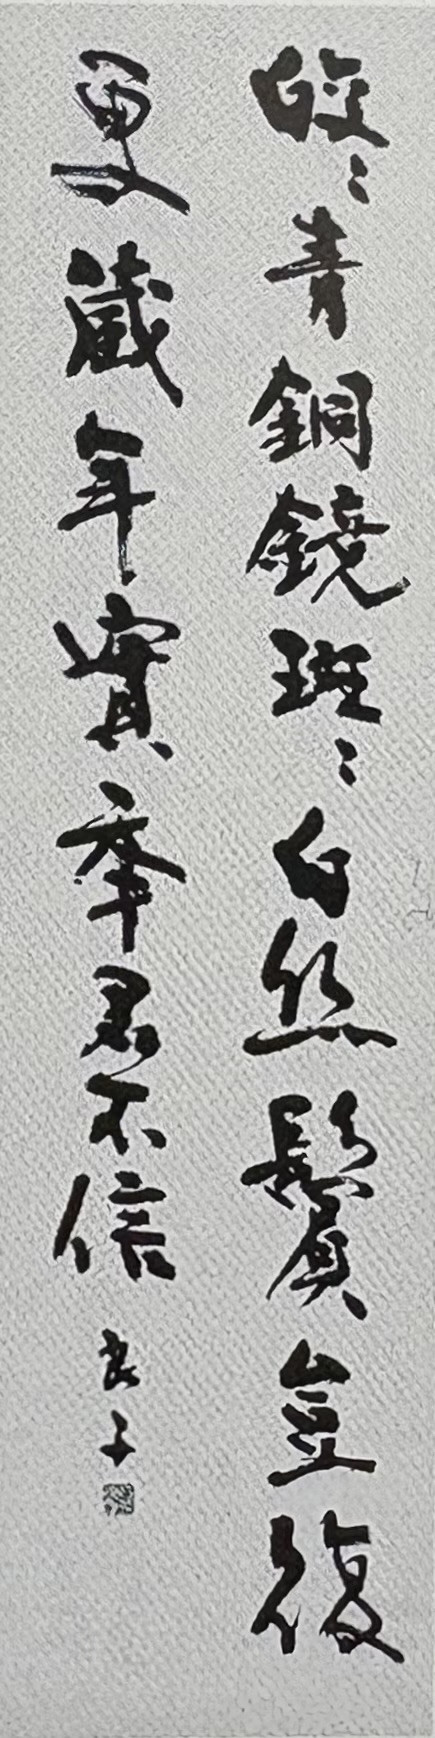 皎〻青銅鏡斑〻白絲鬢豈復
更藏年實年君不信
良子